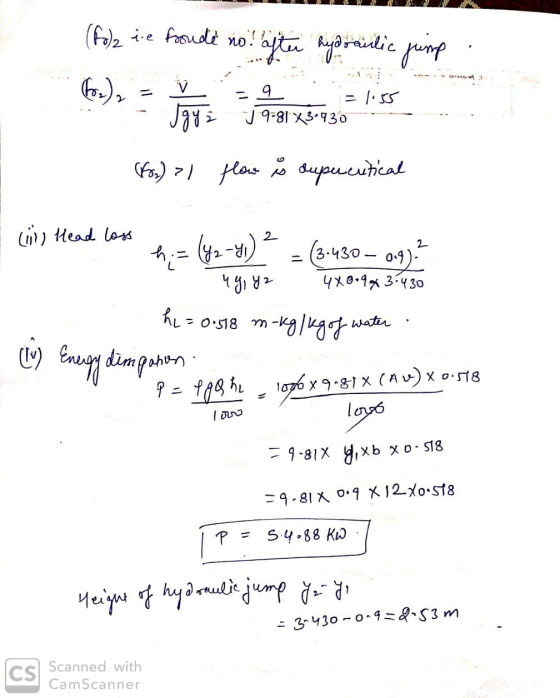 (Fr)2 i.e froude no. after hydraulic jump.
(Fr2)2 = V / √gy2 = 9 / √9.81 × 3.430 = 1.55
(Fr2) >1 flow is supercritical
(iii) Head loss
hL = (y2 - y1)2 / 4 y1 y2 = (3.430 - 0.9)2 / 4×0.9× 3.430
hL = 0.518 m-kg/kg of water.
(iv) Energy dimpation.
P = ρgQhL / 1000 = 1000 × 9.81 × (Av) × 0.518 / 1000
= 9.81 × y1×b × 0.518
= 9.81 × 0.9 × 12 × 0.518
P = 54.88 KW
Height of hydraulic jump y2 - y1
= 3.430 - 0.9 = 2.53 m
CS Scanned with
CamScanner